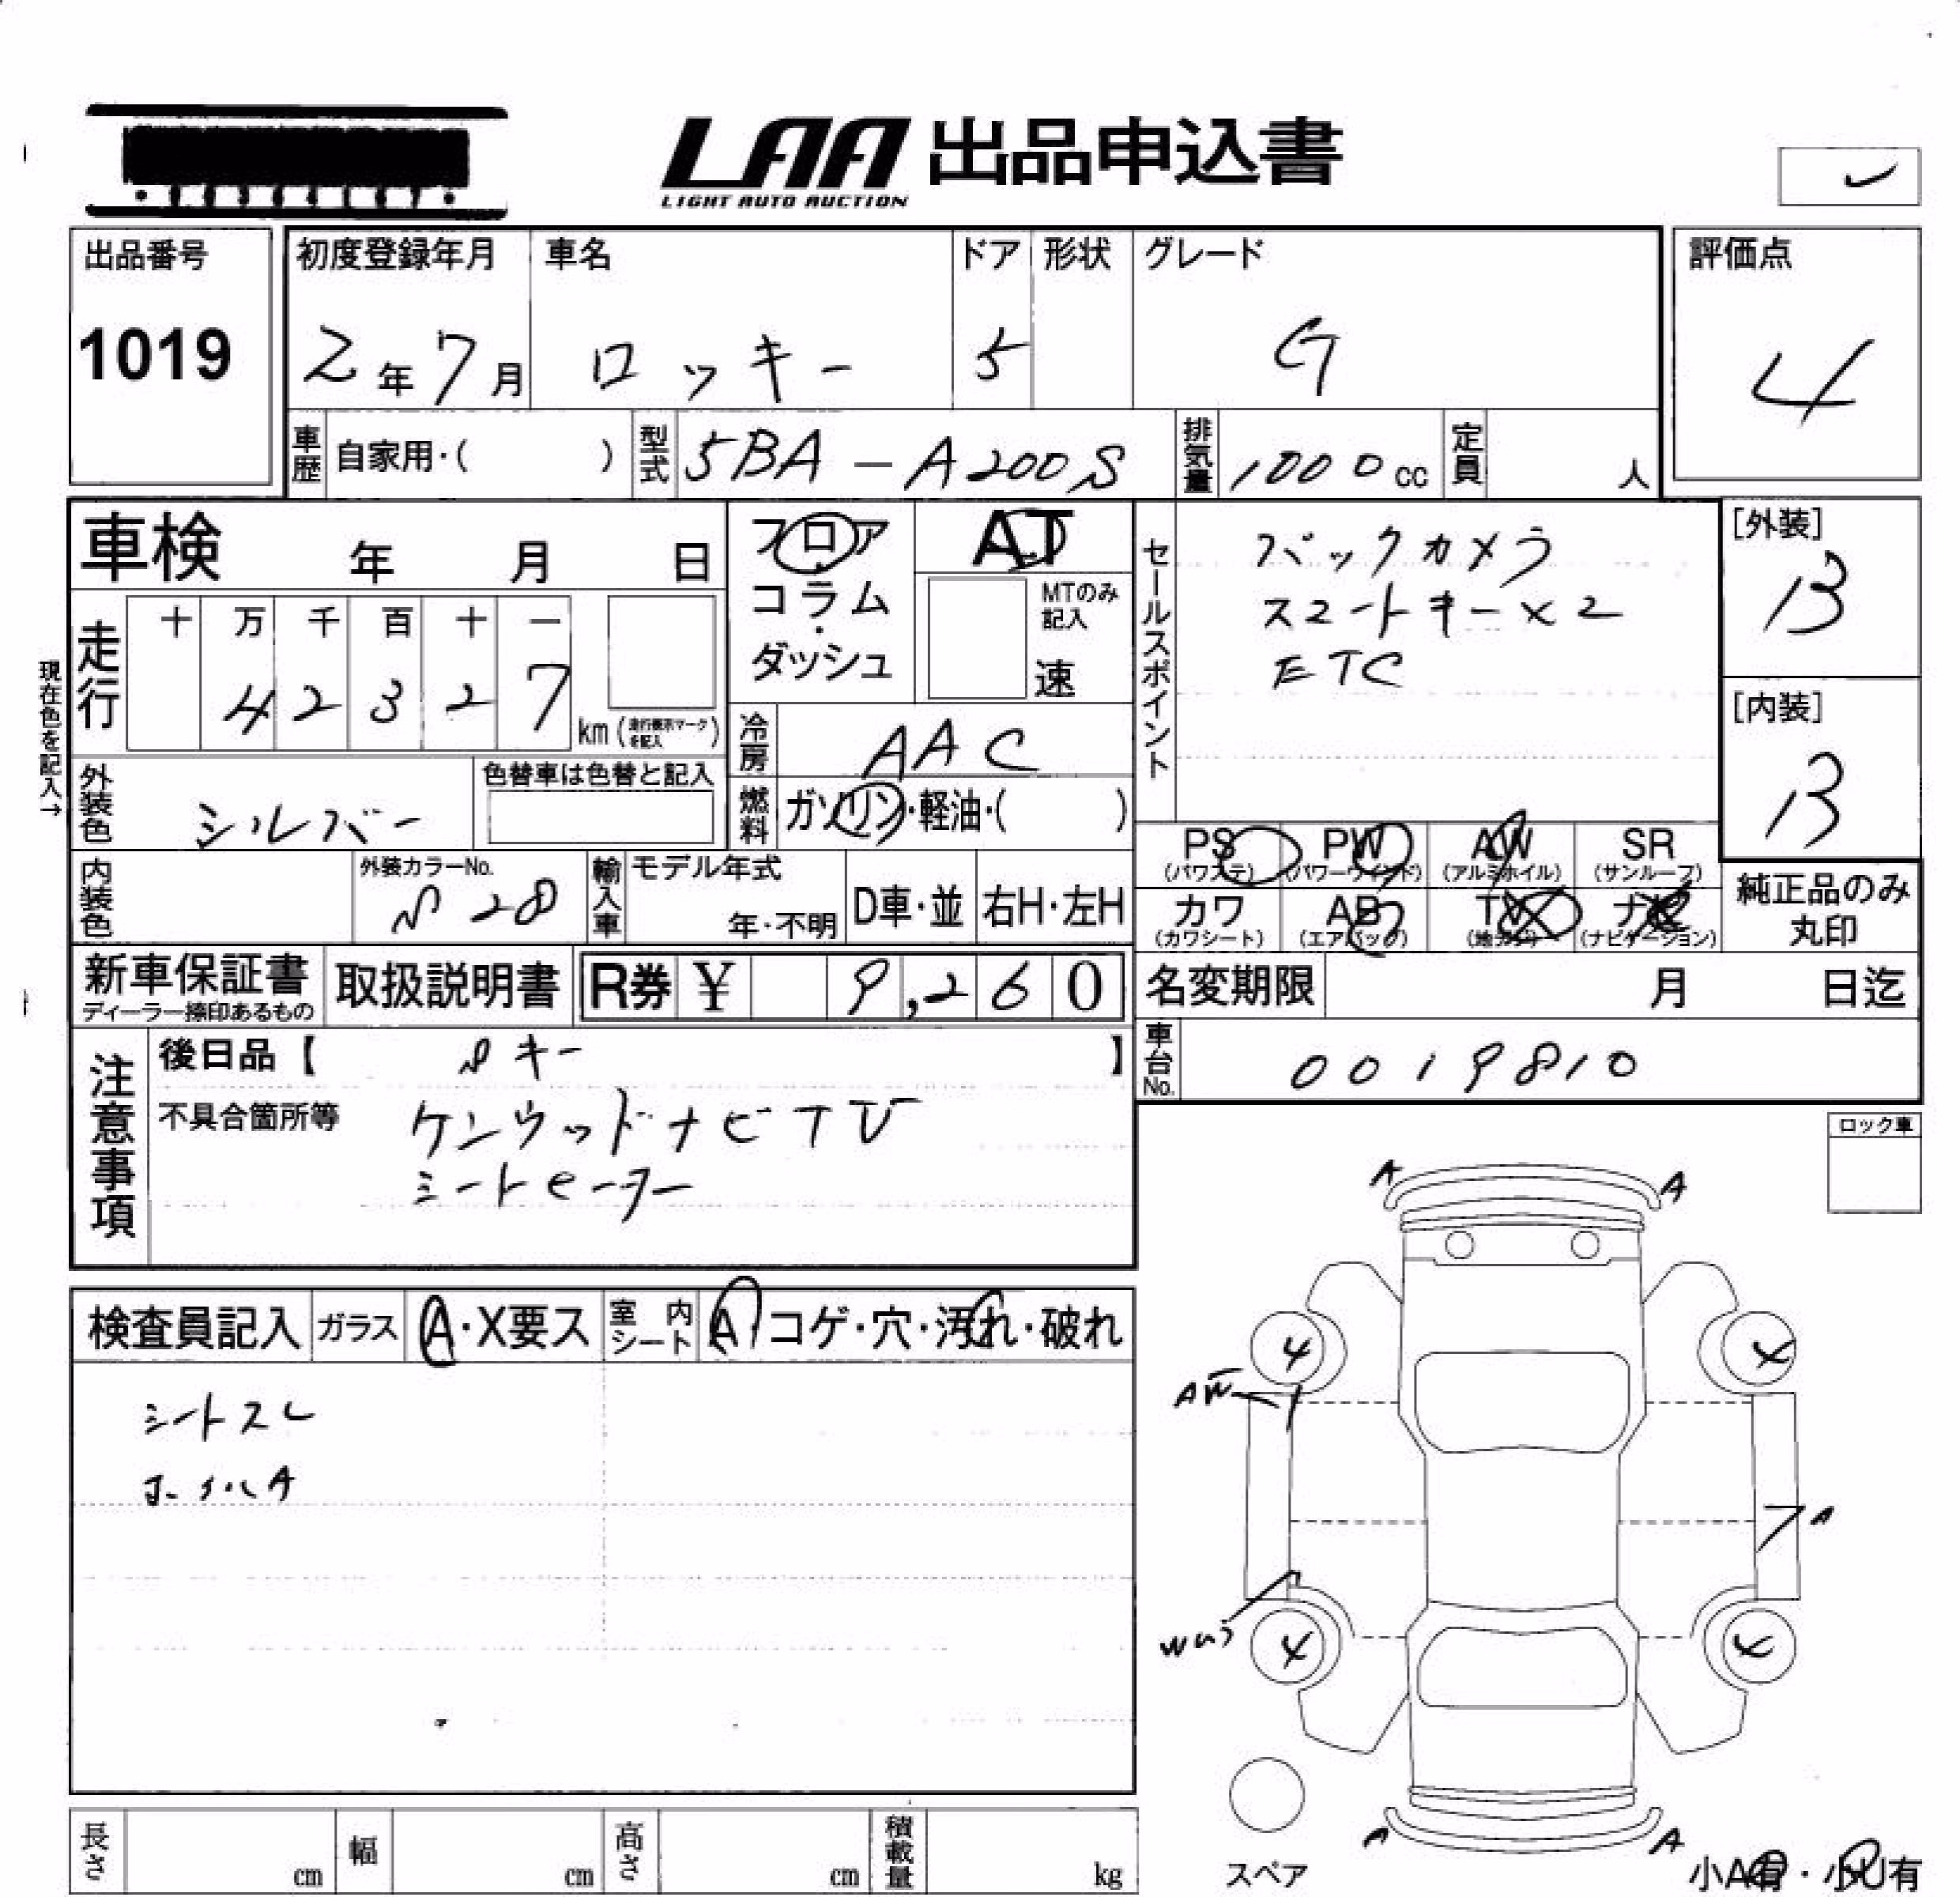 LAA 出品申込書
LIGHT AUTO AUCTION
出品番号
1019
初度登録年月
2年7月
車名
ロッキー
ドア
5
形状
グレード
G
評価点
4
車歴
自家用・( )
型式
5BA-A200S
排気量
1000cc
定員
人
車検 年 月 日
フロア・コラム・ダッシュ
AT
MTのみ記入
速
セールスポイント
バックカメラ
スマートキー×2
ETC
[外装]
B
[内装]
B
現在色を記入→
走行
十 万 千 百 十 一
4 2 3 2 7
km (走行表示マークを記入)
冷房
AAC
外装色
シルバー
色替車は色替と記入
燃料
ガソリン・軽油・( )
PS (パワステ)
PW (パワーウィンド)
AW (アルミホイル)
SR (サンルーフ)
カワ (カワシート)
AB (エアバッグ)
TV (地デジ)
ナビ (ナビゲーション)
純正品のみ丸印
内装色
外装カラーNo.
S28
輸入車
モデル年式
年・不明
D車・並
右H・左H
新車保証書
ディーラー捺印あるもの
取扱説明書
R券 ¥ 9,260
名変期限 月 日迄
車台No.
0019810
注意事項
後日品【 Sキー 】
不具合箇所等
ケンウッドナビTV
シートヒーター
ロック車
検査員記入
ガラス
A・X要ス
室内シート
A コゲ・穴・汚れ・破れ
シートスレ
ホイルA
A A
4 4
AW
A
4 4
A A
スペア
小A有・小U有
長さ cm
幅 cm
高さ cm
積載量 kg